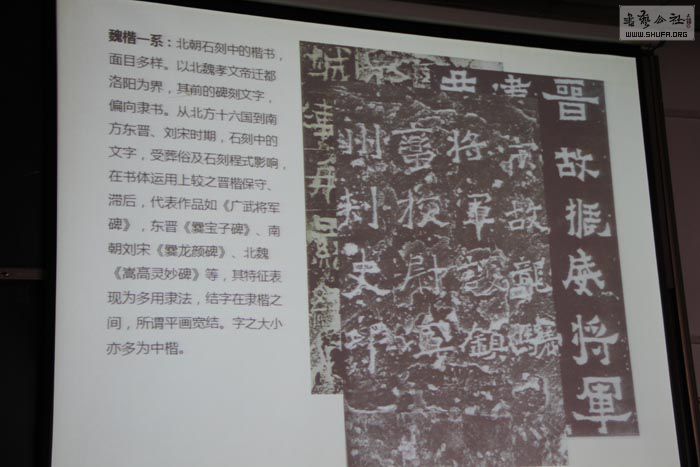 魏楷一系：北朝石刻中的楷书，
面目多样。以北魏孝文帝迁都
洛阳为界，其前的碑刻文字，
偏向隶书。从北方十六国到南
方东晋、刘宋时期，石刻中的
文字，受葬俗及石刻程式影响，
在书体运用上较之晋楷保守、
滞后，代表作品如《广武将军
碑》，东晋《爨宝子碑》、南
朝刘宋《爨龙颜碑》、北魏
《嵩高灵妙碑》等，其特征表
现为多用隶法，结字在隶楷之
间，所谓平画宽结。字之大小
亦多为中楷。
晉故振威將軍
故龍驤
將軍護鎮
蠻校尉寧
州刺史邛
WWW.SHUFA.ORG